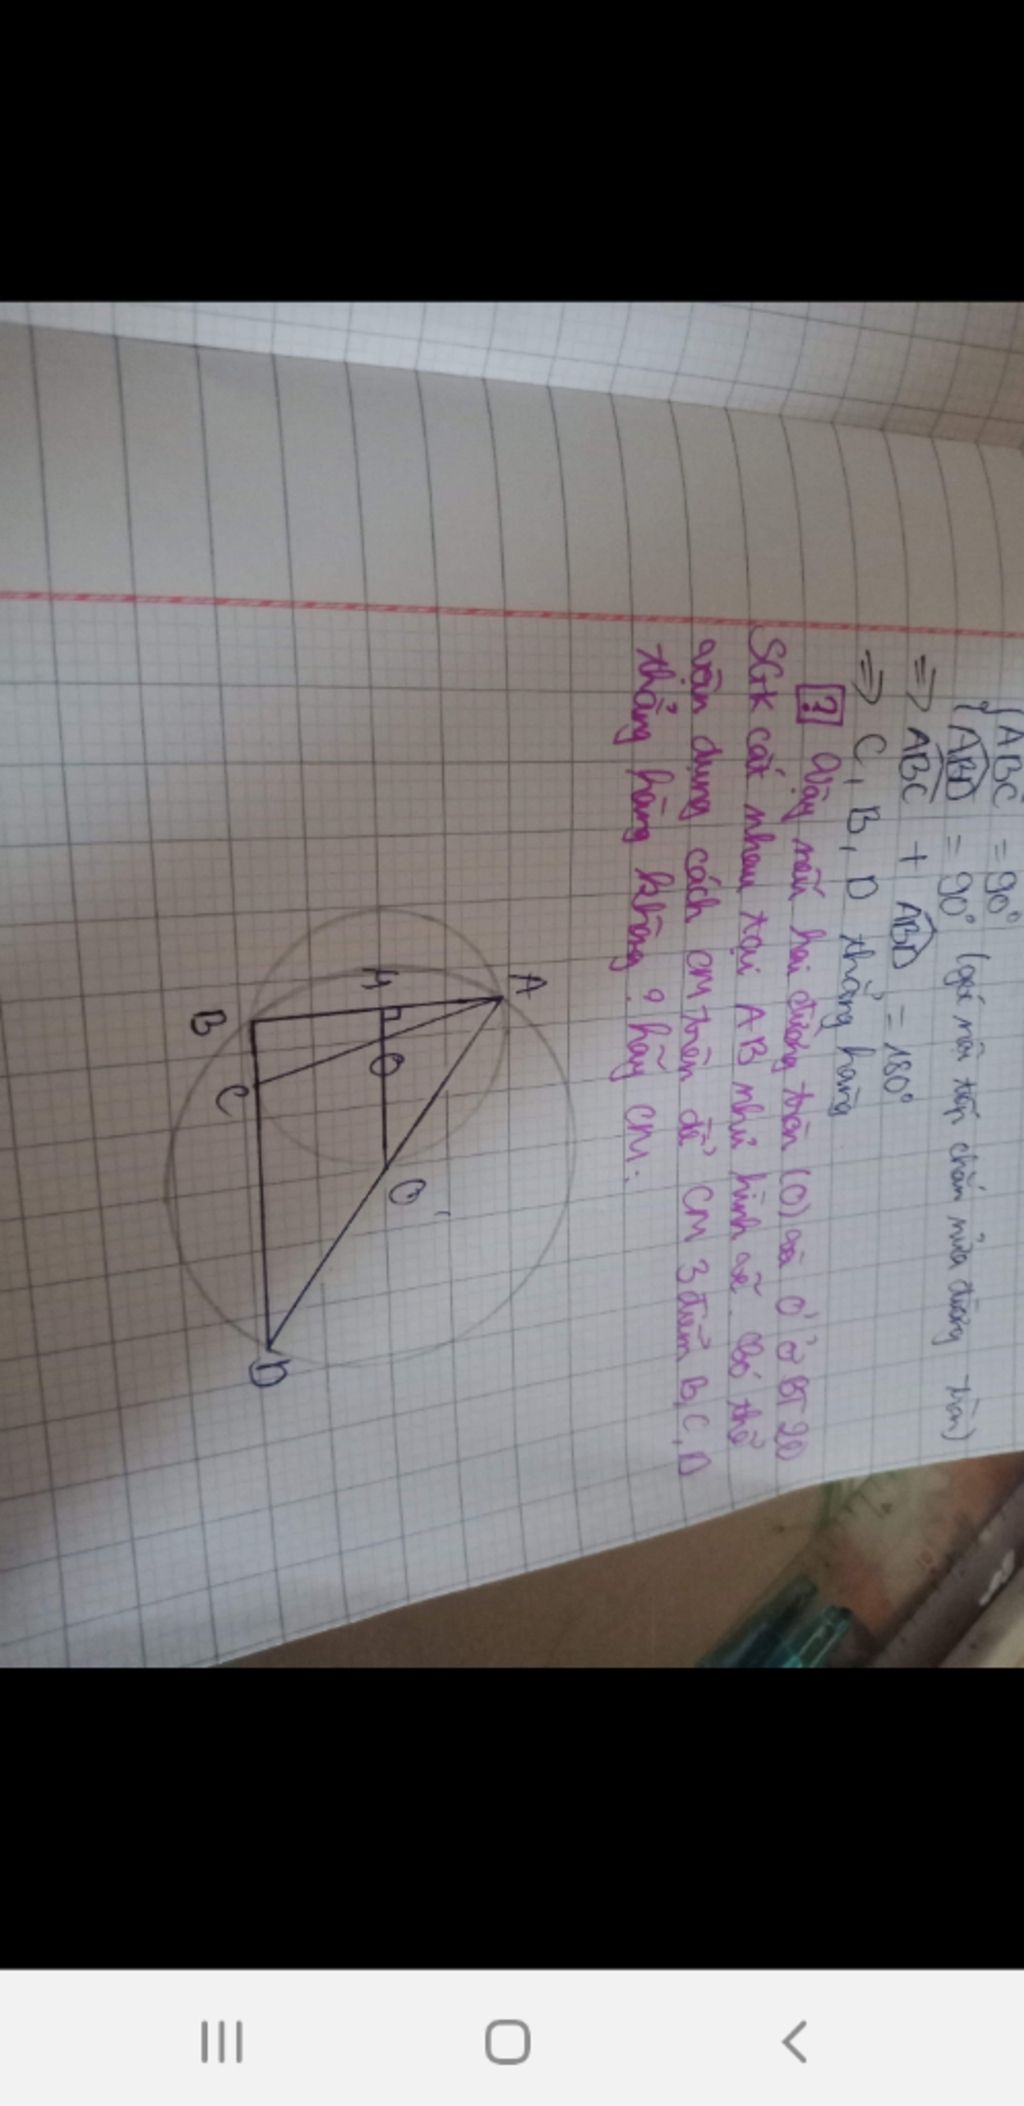 {ABC = 90°
ABD = 90° (góc nội tiếp chắn nửa đường tròn)
⇒ ABC + ABD = 180°
⇒ C, B, D thẳng hàng
? Vậy nếu hai đường tròn (O) và O' ở BT 20
SGK cắt nhau tại AB như hình vẽ. Có thể
vận dụng cách CM trên để CM 3 điểm B, C, D
thẳng hàng không? hãy CM.
A
H
O
O'
B
C
D